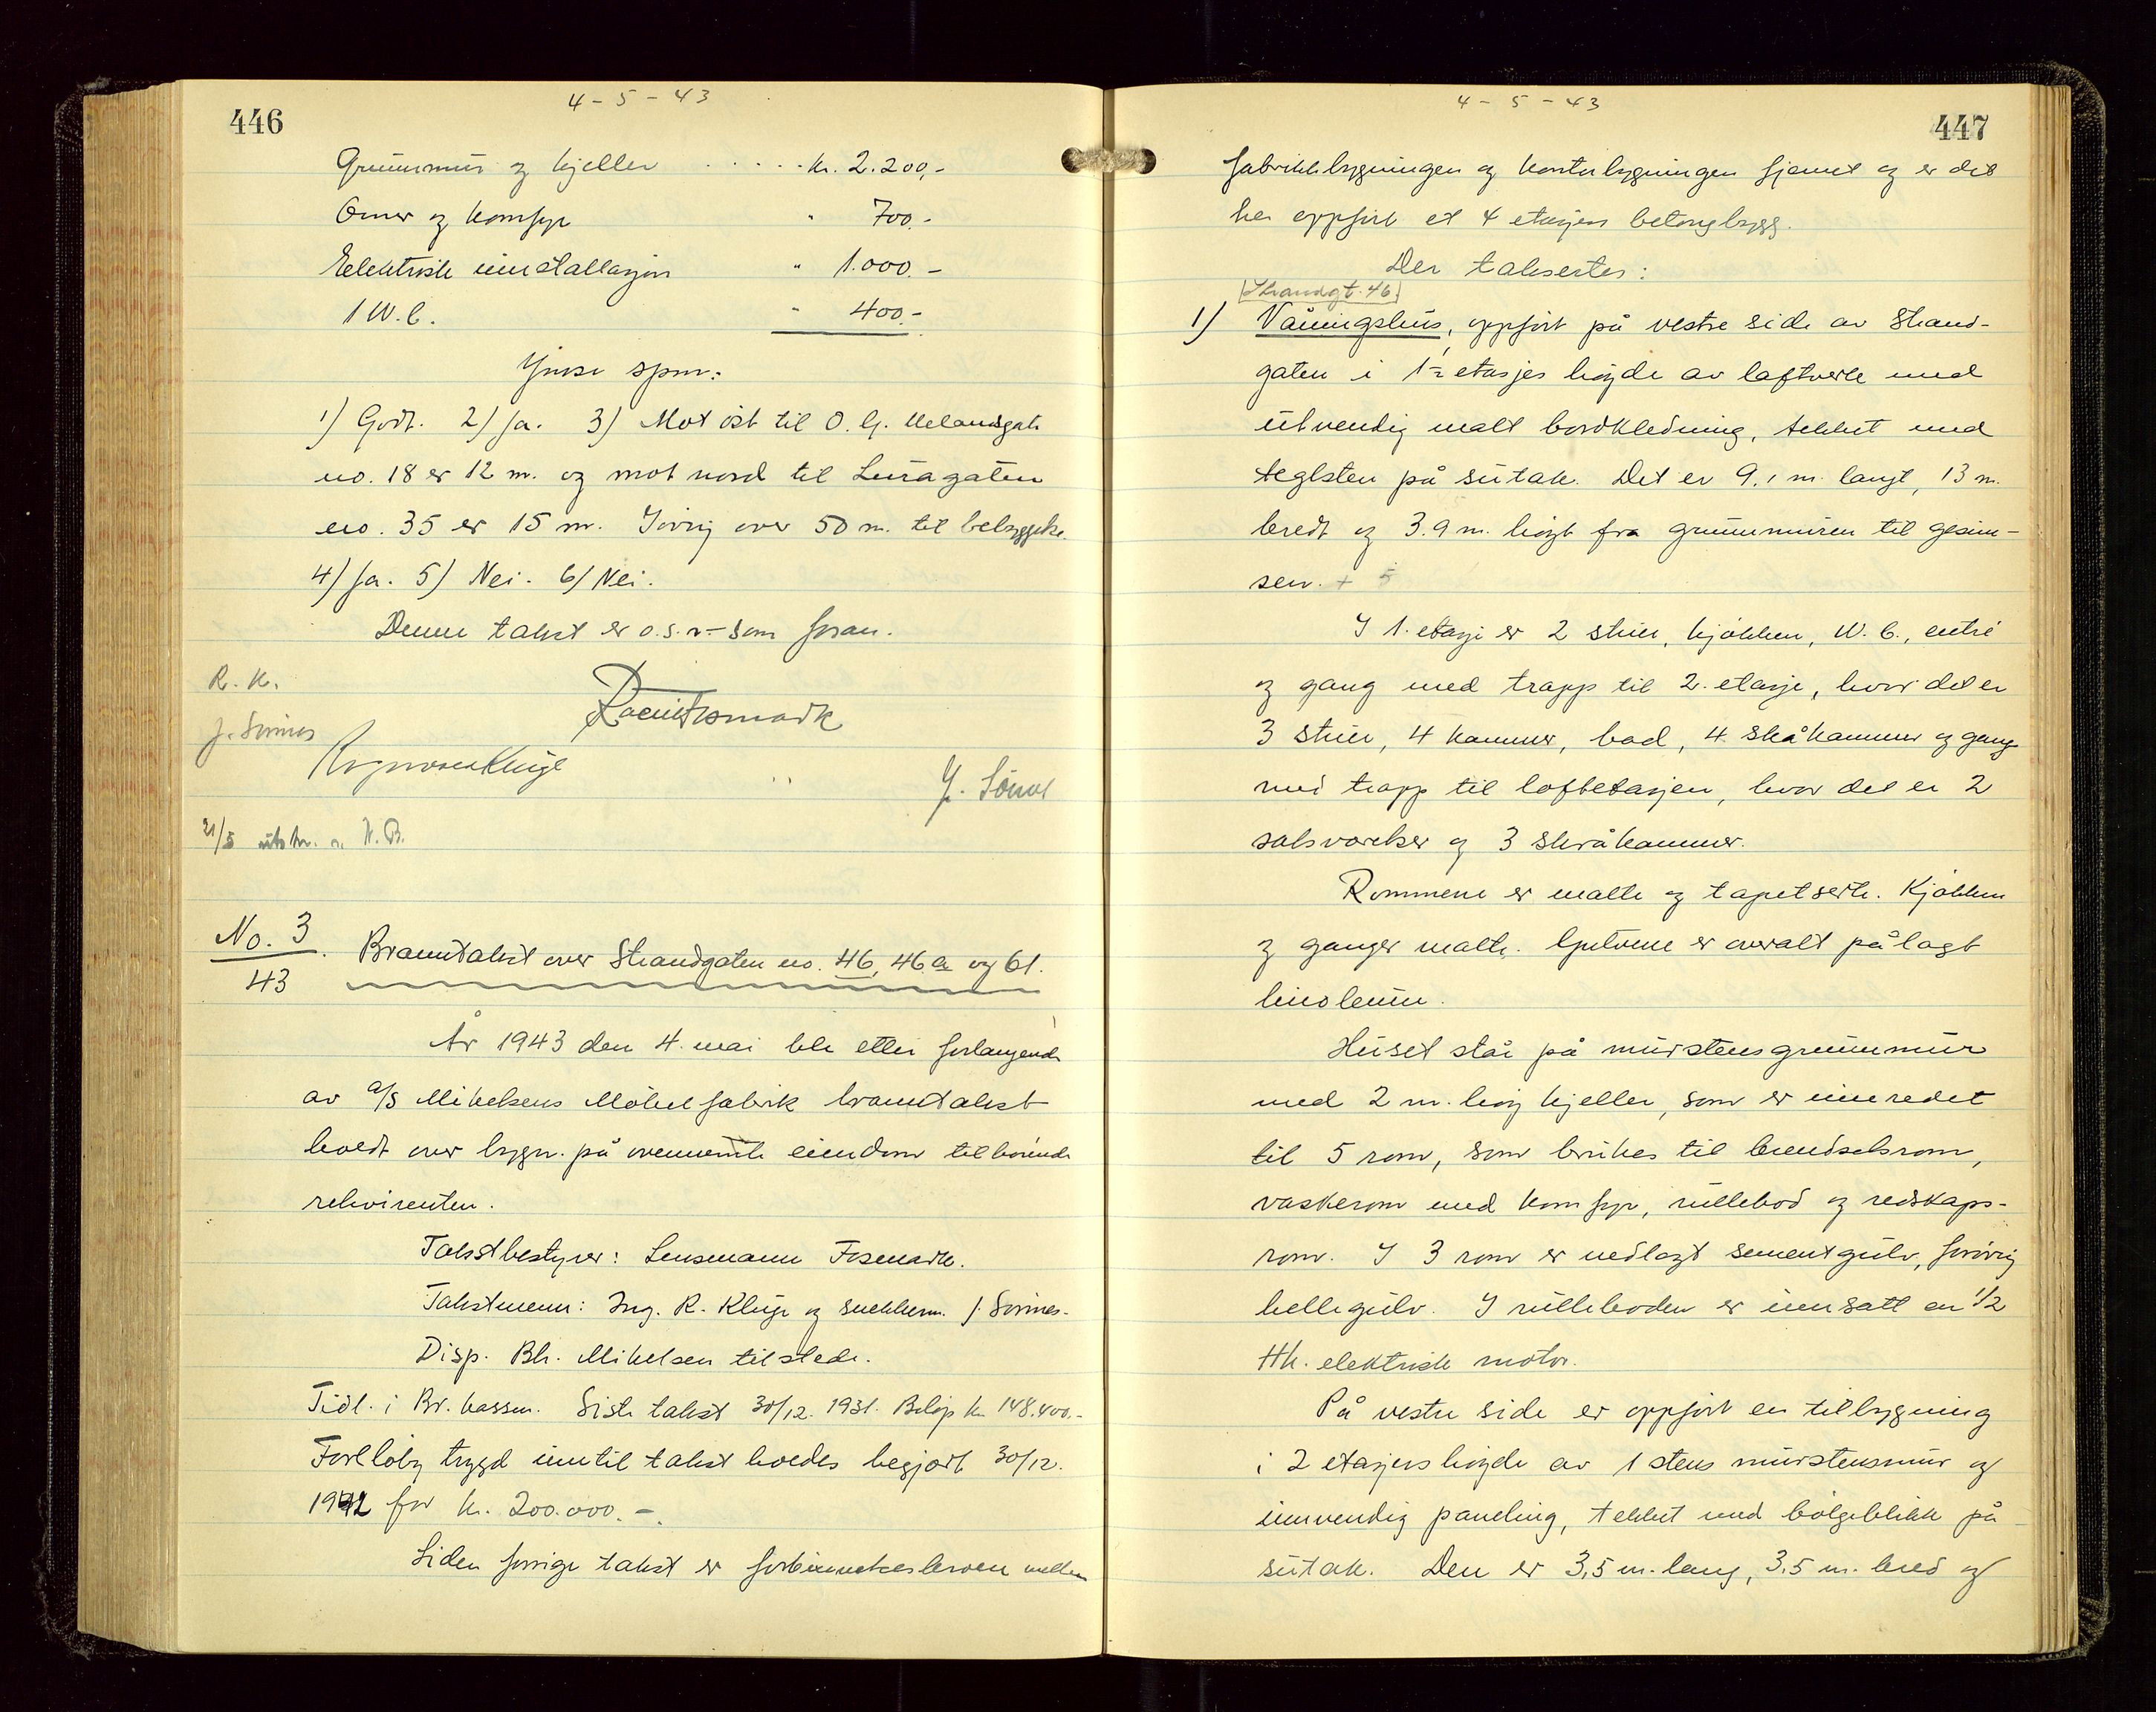 446
4-5-43
Grunnmur og kjeller ..... kr. 2.200,-
Ovner og komfyr " 700.-
Elektrisk innstallasjon " 1.000.-
1 W.C. " 400.-
Ymse spm:
1) Godt. 2) Ja. 3) Mot öst til O. G. Melandsgate
no. 18 er 12 m. og mot nord til Luragaten
no. 35 er 15 m. Iövrig over 50 m. til bebyggelse.
4) Ja. 5) Nei. 6) Nei.
Denne takst er o.s.v.- som foran.
R. K.
J. Sömes
21/5 utskr. a. N.B.
No. 3
43
Branntakst over Strandgaten no. 46, 46a og 61.
År 1943 den 4. mai ble etter forlangende
av a/s Mikelsens Möbelfabrik branntakst
holdt over bygn. på ovennevnte eiendom tilhörende
rekvirenten.
Takstbestyrer: Lensmann Fosmark.
Takstmenn: Ing. R. Kluge og snekkerm. J. Sömes.
Disp. Bh. Mikelsen tilstede.
Tidl. i Br. kassen. Siste takst 30/12. 1931. Belöp kr. 148.400.-
Forelöbig trygd inntil takst holdes begjært 30/12.
1942 for kr. 200.000.-.
Siden forrige takst er forbinnelsesbroen mellem
447
4-5-43
fabrikkbygningen og kontorbygningen fjernet og er det
her oppfört et 4 etasjers betongbygg.
Der takseres:
[Strandgt. 46]
1) Våningshus, oppfört på vestre side av Strand-
gaten i 1½ etasjes höyde av laftverk med
utvendig malt bordkledning, tekket med
teglsten på sutak. Det er 9,1 m. langt, 13 m.
bredt og 3.9 m. höyt fra grunnmuren til gesim-
sen. + 5
I 1. etasje er 2 stuer, kjökken, W.C., entré
og gang med trapp til 2. etasje, hvor det er
3 stuer, 4 kammer, bad, 4 skråkammer og gang
med trapp til loftetasjen, hvor det er 2
halsvorelser og 3 skråkammer.
Rommene er malte og tapetserte. Kjökken
og ganger malte. Gulvene er overalt pålagt
linoleum.
Huset står på murstensgrunnmur
med 2 m. höy kjeller, som er innredet
til 5 rom, som brukes til brendselsrom,
vaskerom med komfyr, rullebod og redskaps-
rom. I 3 rom er nedlagt sementgulv, forövrig
hellegulv. I rulleboden er innsatt en 1/2
Hk. elektrisk motor.
På vestre side er oppfört en tilbygning
i 2 etasjers höyde av 1 stens murstensmur og
innvendig paneling, tekket med bölgeblikk på
sutak. Den er 3,5 m. lang, 3,5 m. bred og